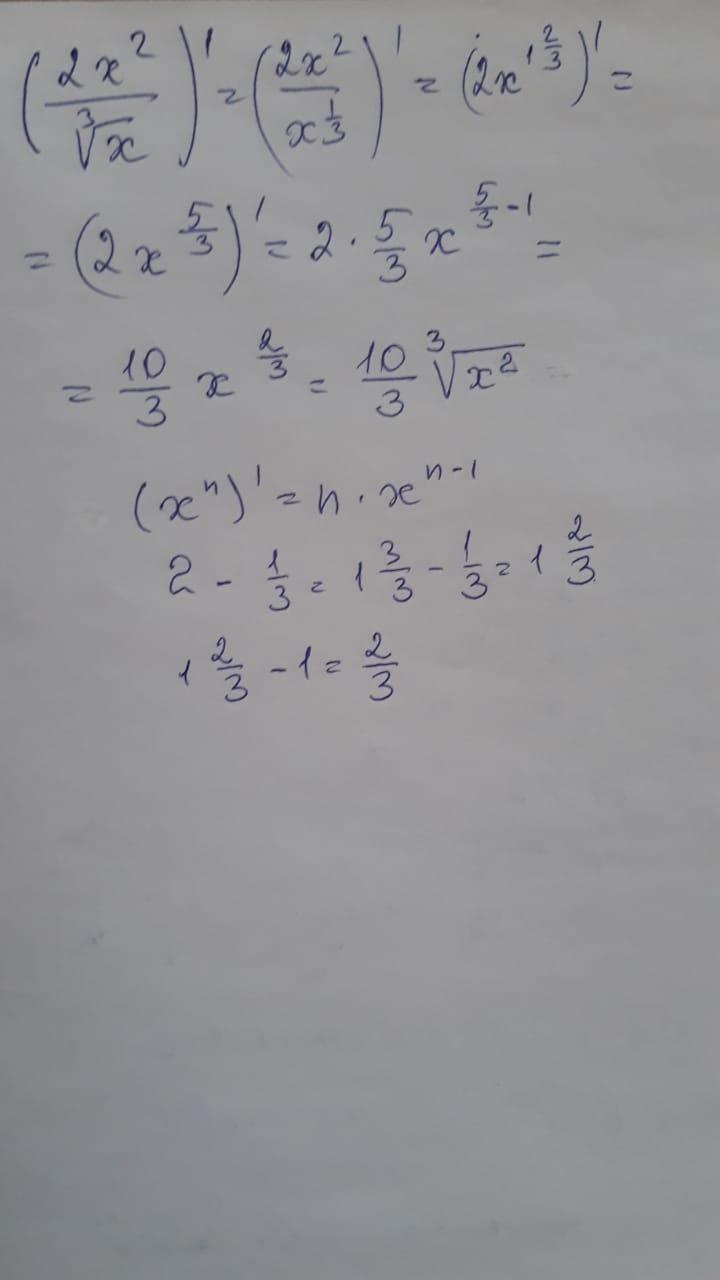 (2x²/∛x)' = (2x²/x^(1/3))' = (2x^(1 2/3))' =
= (2x^(5/3))' = 2 · 5/3 x^(5/3 - 1) =
= 10/3 x^(2/3) = 10/3 ∛x²
(xⁿ)' = n · x^(n-1)
2 - 1/3 = 1 3/3 - 1/3 = 1 2/3
1 2/3 - 1 = 2/3